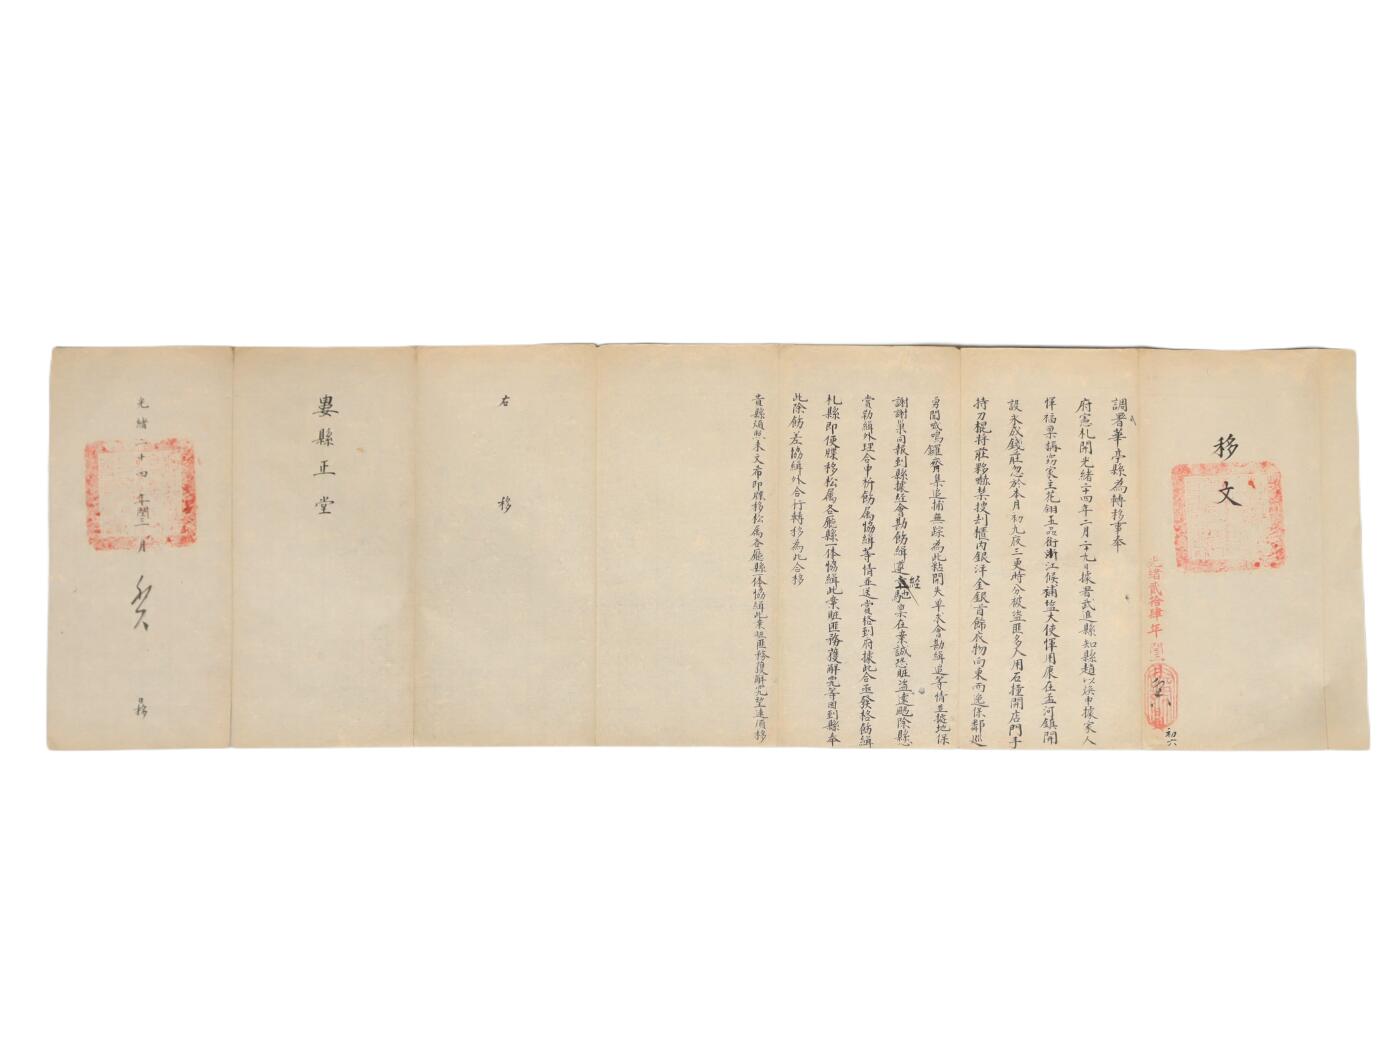 移文
光緒貳拾肆年閏三
初六
調署華亭縣為轉移事奉
府憲札開光緒二十四年二月二十九日據署武進縣知縣趙以煥申據家人
惲福稟稱窃家主花翎五品銜浙江候補塩大使惲用康在孟河鎮開
設永成錢莊忽於本月初九夜三更時分被盜匪多人用石撞開店門手
持刀棍將莊夥嚇禁搜刦櫃內銀洋金銀首飾衣物向東而逸保鄰巡
勇聞喊鳴鑼齊集追捕無踪為此粘開失單求會勘緝追等情並據地保
謝謝巢同報到縣據經會勘飭緝遵經馳稟在案誠恐賍盜遠颺除縣懸
賞勒緝外理合申祈飭属協緝等情並送賞格到府據此合亟發格飭緝
札縣即便牒移松属各廳縣一体協緝此案賍匪務獲解究等因到縣奉
此除飭差協緝外合行轉移為此合移
貴縣煩照來文希即牒移松属各廳縣一体協緝此案賍匪務獲解究望速須移
右移
婁縣正堂
光緒二十四年閏三月
日移